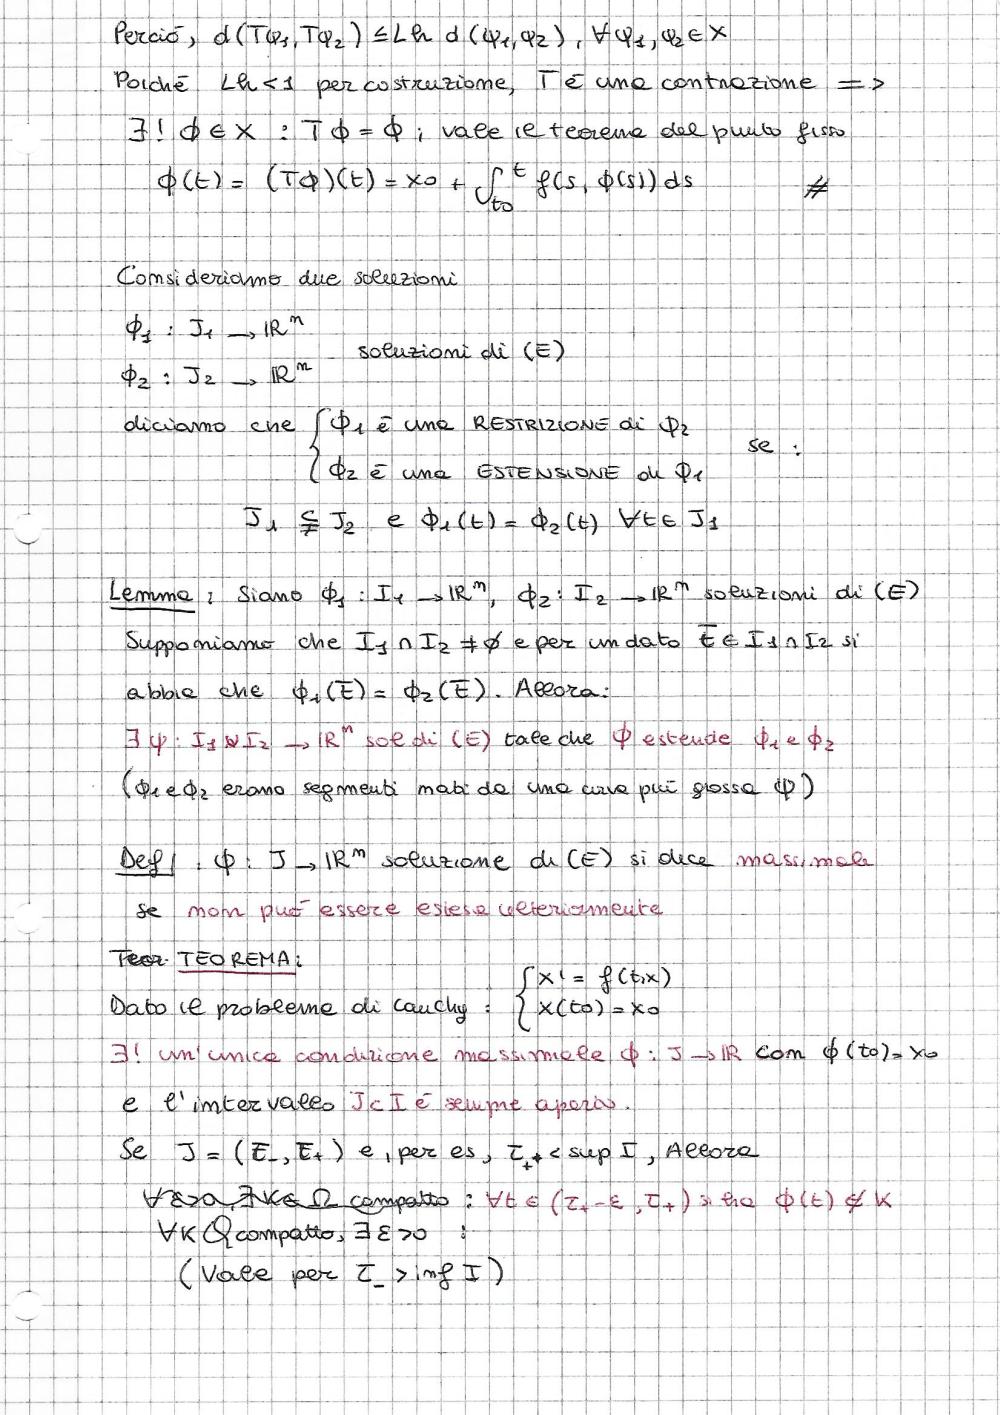 Perciò, d(Tφ₁, Tφ₂) ≤ Lh d(φ₁, φ₂), ∀φ₁, φ₂ ∈ X
Poiché Lh < 1 per costruzione, T è una contrazione =>
∃! ϕ ∈ X : Tϕ = ϕ, vale il teorema del punto fisso
ϕ(t) = (Tϕ)(t) = x₀ + ∫_{t₀}^{t} f(s, ϕ(s)) ds #
Consideriamo due soluzioni
ϕ₁ : J₁ → ℝⁿ
soluzioni di (E)
ϕ₂ : J₂ → ℝⁿ
diciamo che { ϕ₁ è una RESTRIZIONE di ϕ₂
se :
ϕ₂ è una ESTENSIONE di ϕ₁
J₁ ⊊ J₂ e ϕ₁(t) = ϕ₂(t) ∀t ∈ J₁
Lemma : Siano ϕ₁ : I₁ → ℝⁿ, ϕ₂ : I₂ → ℝⁿ soluzioni di (E)
Supponiamo che I₁ ∩ I₂ ≠ ∅ e per un dato t̄ ∈ I₁ ∩ I₂ si
abbia che ϕ₁(t̄) = ϕ₂(t̄). Allora:
∃ ψ : I₁ ∪ I₂ → ℝⁿ sol di (E) tale che ψ estende ϕ₁ e ϕ₂
(ϕ₁ e ϕ₂ erano segmenti nati da una curva più grossa ψ)
Def : ϕ : J → ℝⁿ soluzione di (E) si dice massimale
se non può essere estesa ulteriormente
Teor. TEOREMA:
Dato il problema di Cauchy : { x' = f(t,x)
x(t₀) = x₀
∃! un'unica condizione massimale ϕ : J → ℝ con ϕ(t₀) = x₀
e l'intervallo J ⊂ I è sempre aperto.
Se J = (τ₋, τ₊) e, per es, τ₊ < sup I, Allora
∀ε>0, ∃K∈Ω compatto : ∀t ∈ (τ₊-ε, τ₊) si ha ϕ(t) ∉ K
∀K compatto, ∃ε>0 :
(Vale per τ₋ > inf I)